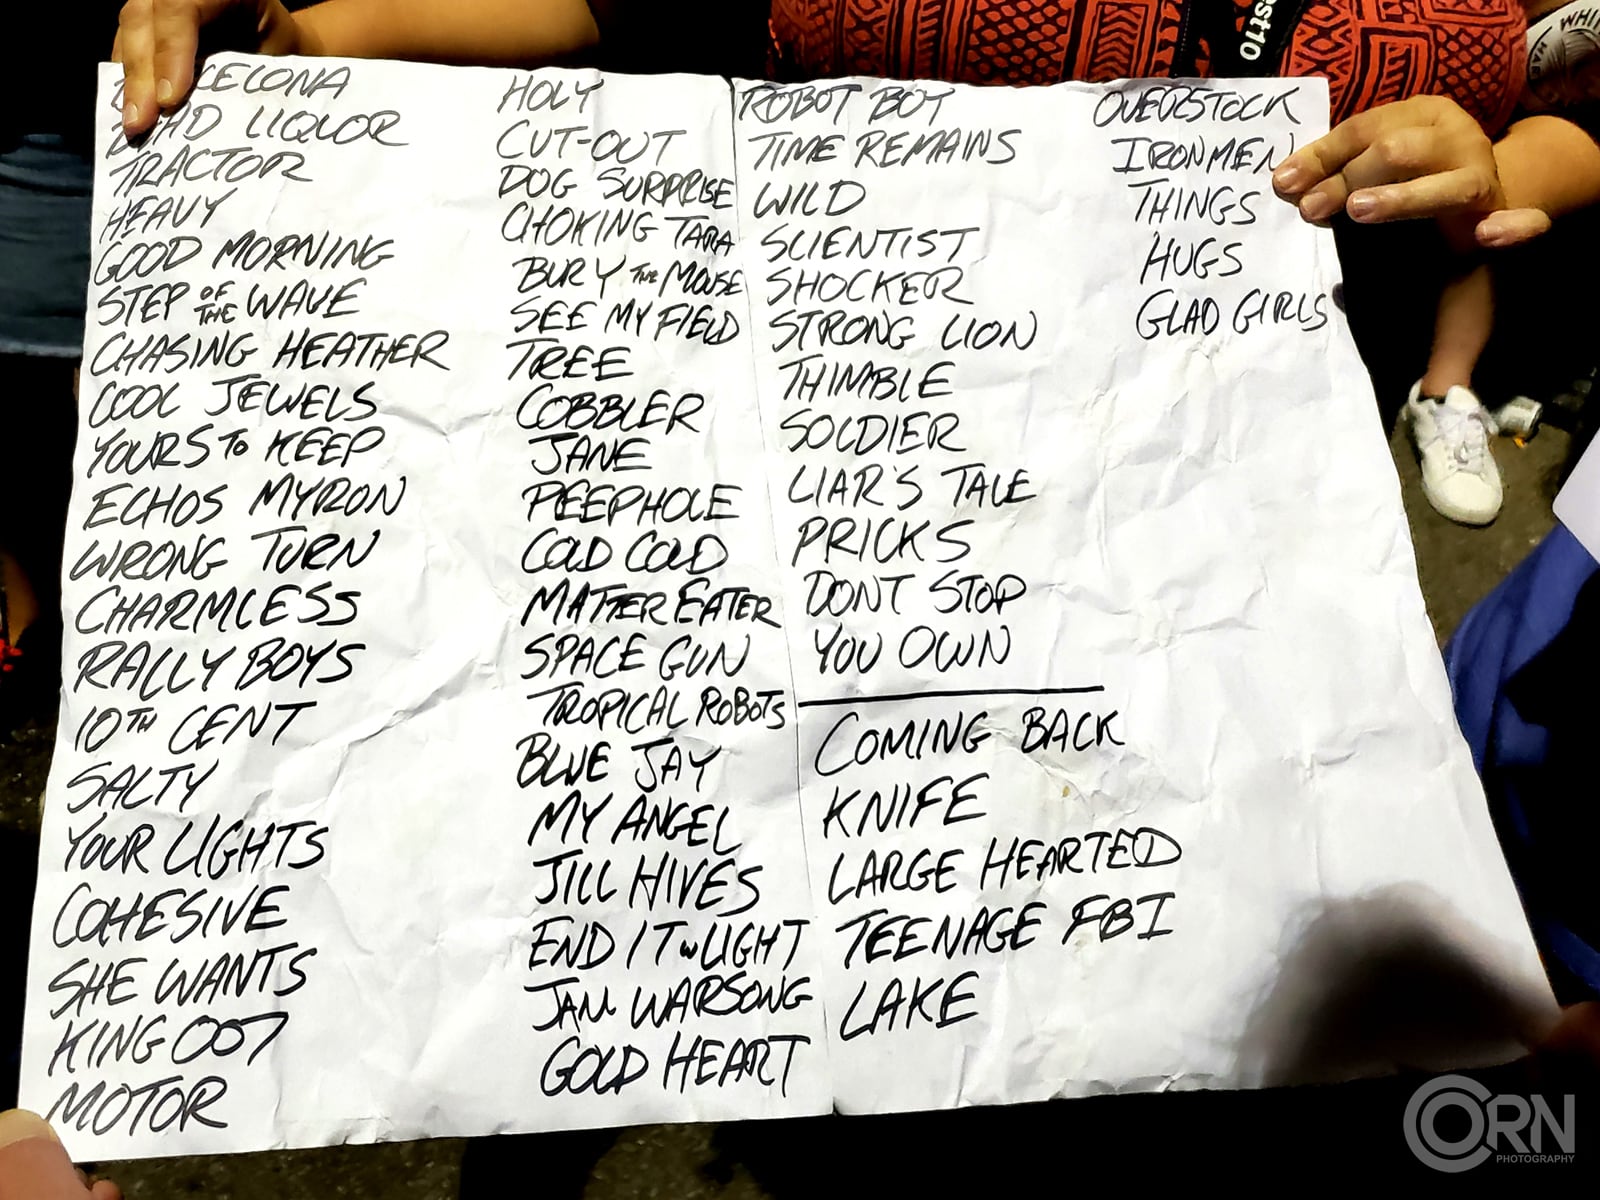 CELONA
LIQUOR
TRACTOR
HEAVY
GOOD MORNING
STEP OF THE WAVE
CHASING HEATHER
COOL JEWELS
YOURS TO KEEP
ECHOS MYRON
WRONG TURN
CHARMLESS
RALLY BOYS
10TH CENT
SALTY
YOUR LIGHTS
COHESIVE
SHE WANTS
KING 007
MOTOR
HOLY
CUT-OUT
DOG SURPRISE
CHOKING TARA
BURY THE MOUSE
SEE MY FIELD
TREE
COBBLER
JANE
PEEPHOLE
COLD COLD
MATTER EATER
SPACE GUN
TROPICAL ROBOTS
BLUE JAY
MY ANGEL
JILL HIVES
END IT W LIGHT
JAM WARSONG
GOLD HEART
ROBOT BOY
TIME REMAINS
WILD
SCIENTIST
SHOCKER
STRONG LION
THIMBLE
SOLDIER
LIAR'S TALE
PRICKS
DONT STOP
YOU OWN
COMING BACK
KNIFE
LARGE HEARTED
TEENAGE FBI
LAKE
OVERSTOCK
IRONMEN
THINGS
HUGS
GLAD GIRLS
est10
WHI
CORN
PHOTOGRAPHY